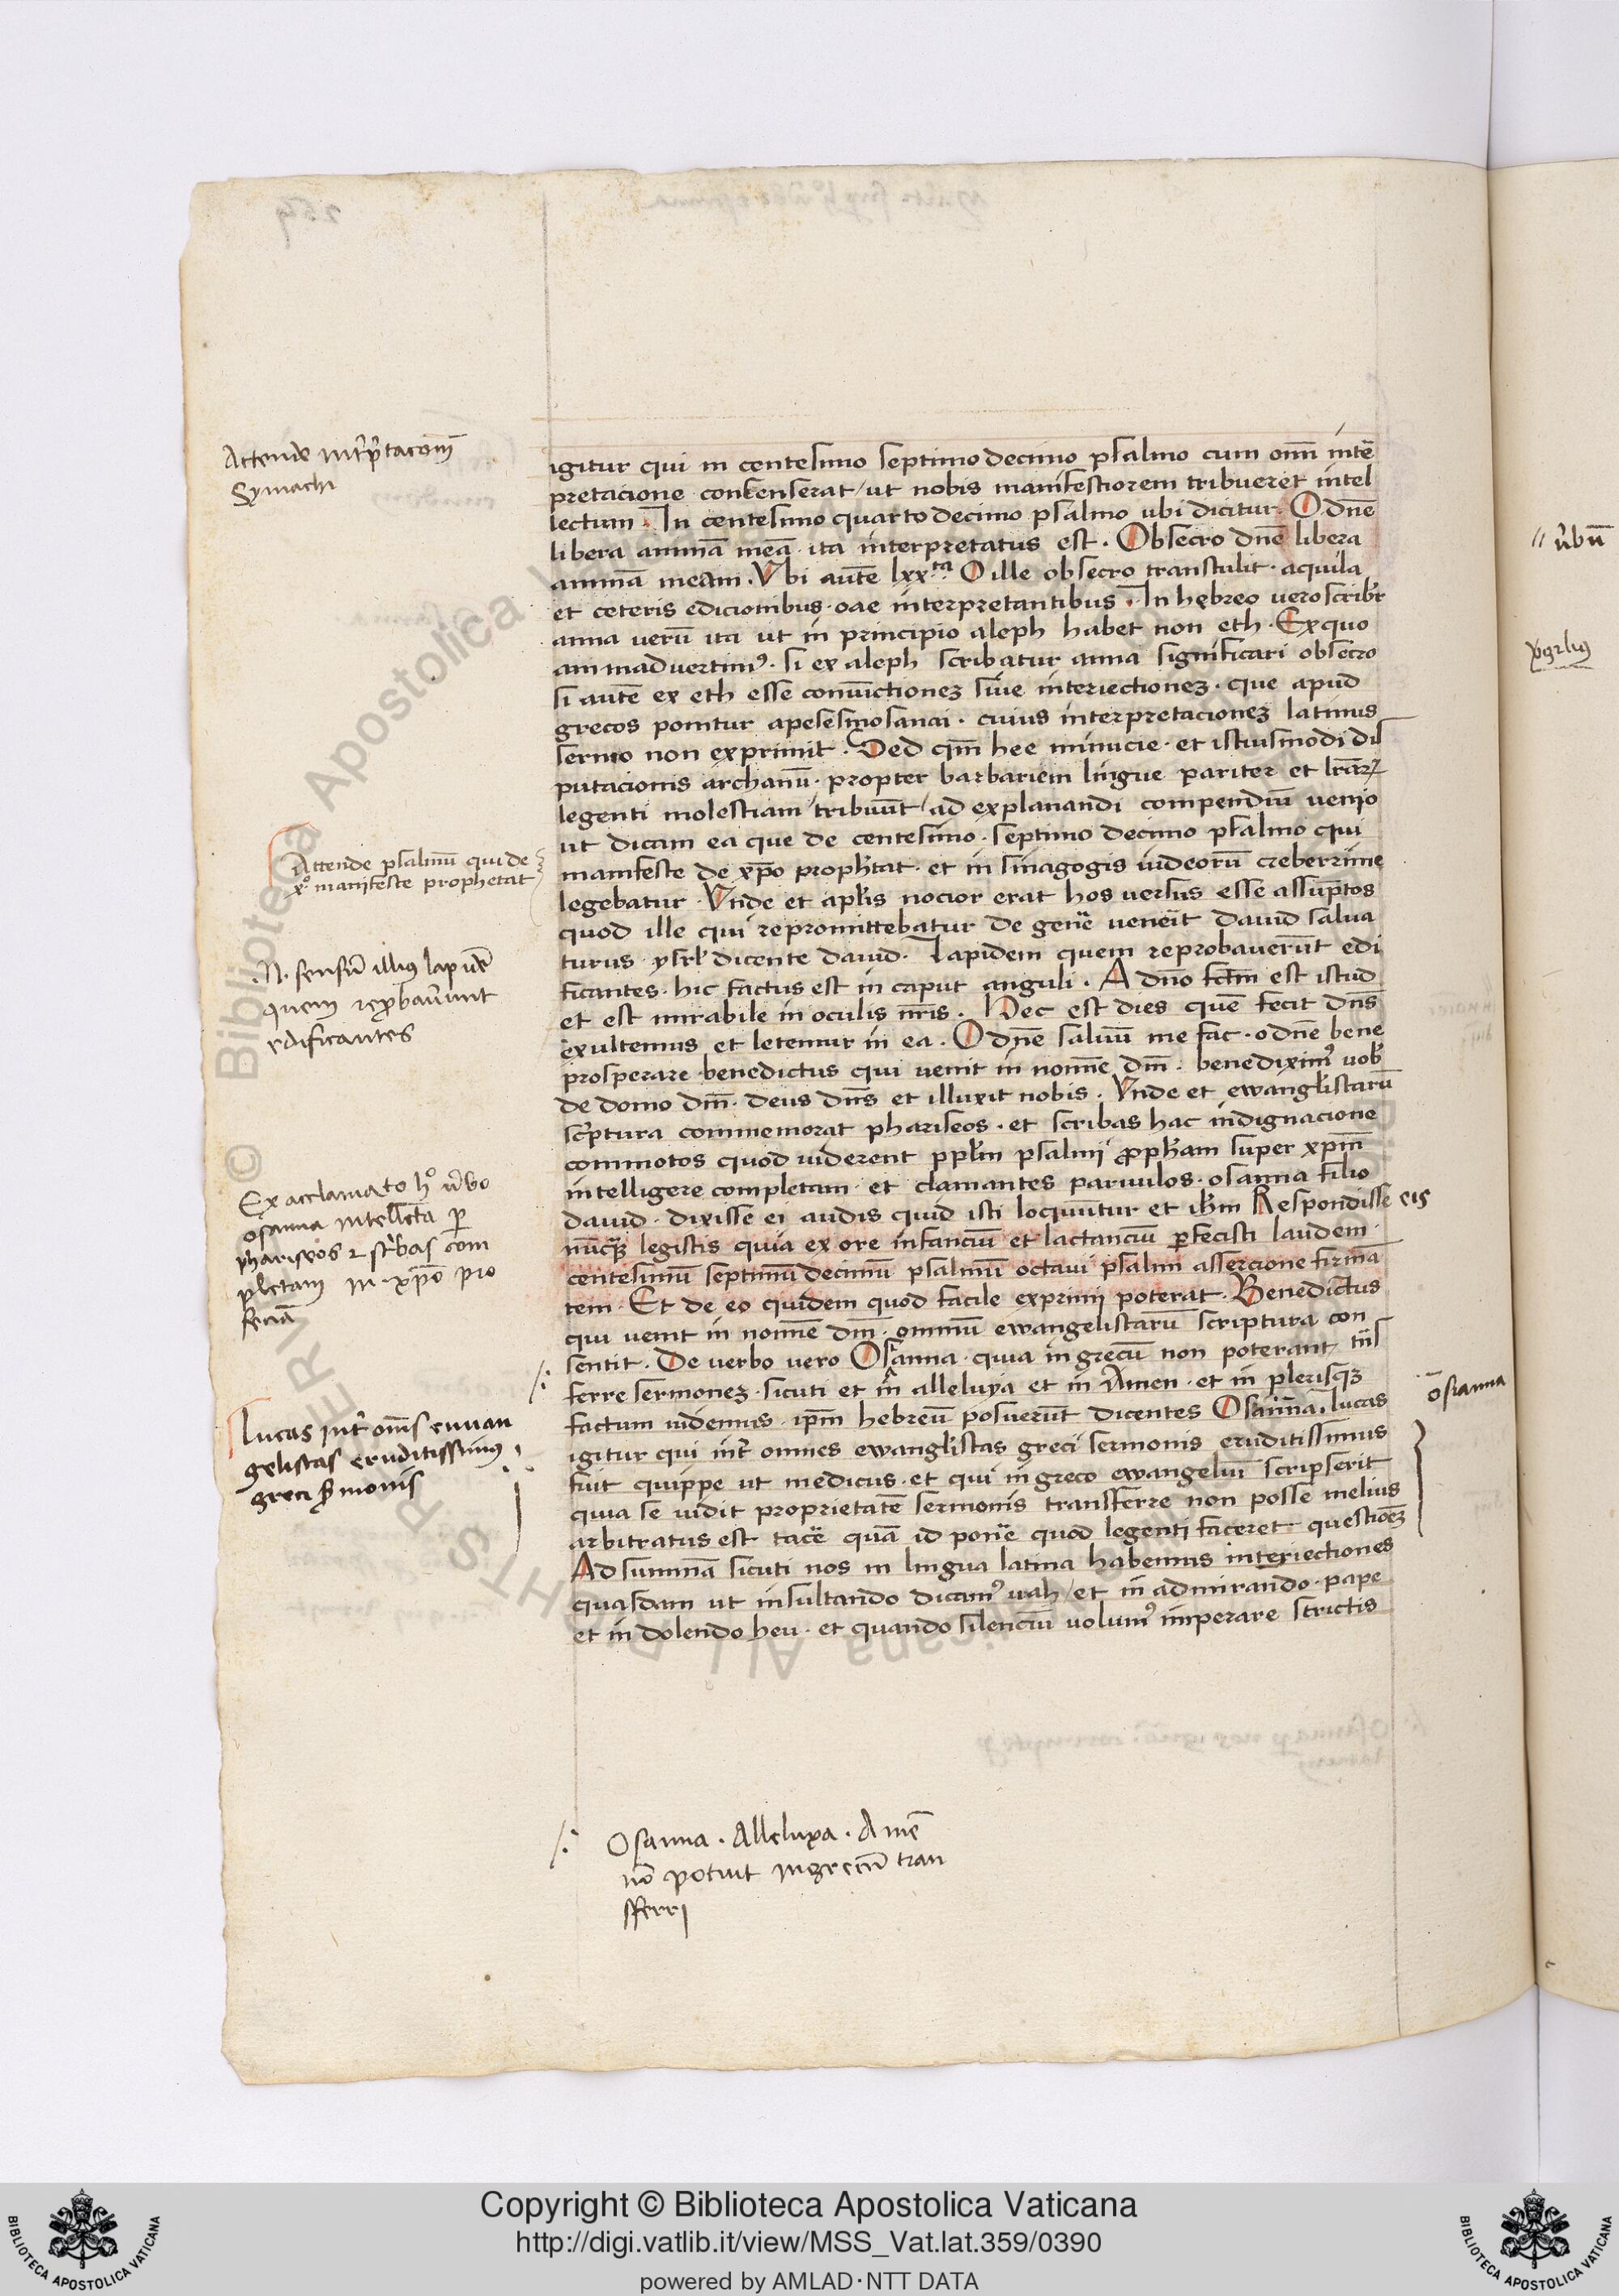 Attende int̄p̄tacōm̄
Symachi
igitur qui in centesimo septimo decimo psalmo cum om̄i intē
pretacione consenserat / ut nobis manifestiorem tribueret intel
lectum . In centesimo quarto decimo psalmo ubi dicitur . O dn̄e
libera animā meā . ita interpretatus est . Obsecro dn̄e libera
animā meam . Vbi autē lxx.ta O ille obsecro transtulit . aquila
et ceteris edicionibus . oae interpretantibus . In hębreo vero scribr̄
anna verū ita ut in principio aleph habet non eth . Ex quo
animadvertim9 . si ex aleph scribatur anna significari obsecro
si autē ex eth esse coniūctionez sive interiectionez . que apud
grecos ponitur apesesmosanai . cuius interpretacionez latinus
sermo non exprimit . Sed qm̄ hee minucie . et istiusmodi dis
putacionis archanū . propter barbariem lingue pariter et lr̄ar̄ꝝ
legenti molestiam / tribuūt / ad explanandi compendiū venio
ut dicam ea que de centesimo . septimo decimo psalmo qui
manifeste de xp̄o proph̄tat . et in sinagogis iudeorū creberrime
legebatur . Vnde et apl̄is nocior erat hos versus esse assūptos
quod ille qui repromittebatur de genē veneīt dauid salua
turus . ysrl̄ dicente dauid . Lapidem quem reprobaverūt edi
ficantes . hic factus est in caput anguli . A dn̄o fct̄m est istud
et est mirabile in oculis nr̄is . Hec est dies quē fecit dn̄s
exultemus et letemur in ea . O dn̄e saluū me fac . o dn̄e bene
prosperare . benedictus qui venit in nomīe dn̄i . benedixim9 vob̄
de domo dn̄i . deus dn̄s et illuxit nobis . Vnde et ewangl̄istarū
sc̄ptura commemorat phariseos . et scribas hac indignacione
commotos quod viderent ppl̄m psalmi ꝓph̄am super xp̄m
intelligere completam . et clamantes paruulos . osanna filio
dauid . dixisse ei audis quid isti loquūtur et ih̄m Respondisse eis
nūcqz legistis quia ex ore infanciū et lactanciū ꝑfecisti laudem .
centesimū septimū decimū psalmū octaui psalmi assercione firma
tem . Et de eo quidem quod facile exprimi poterat . Benedictus
qui venit in nomīe dn̄i . omniū ewangelistarū scriptura con
sentit . De verbo vero Osianna . quia in grecū non poterant tn̄s
ferre sermonez . sicuti et in alleluya et in Amen . et in plerisqz
factum uidemus . ip̄m hebreū posuerūt dicentes Osianna . Lucas
igitur qui int̄ omnes ewangl̄istas greci sermonis eruditissimus
fuit quippe ut medicus . et qui in greco ewangeliū scripserit
quia se vidit proprietatē sermonis transferre non posse melius
arbitratus est tacē quā id ponē quod legenti faceret questiōēz
Ad summā sicuti nos in lingua latina habemus interiectiones
quasdam ut insultando dicam9 uah / et in admirando . pape
et in dolendo heu . et quando silenciū volum9 imperare strictis
Attende psalmū qui de
x̊ manifeste prophetat
.N. sensū illius lapidē
quem rep̄bauerunt
edificantes
Ex acclamato h̊ ūbo
osanna intellecta ꝑ
phariseos ⁊ sc̄bas com
pletam in xp̄o pro
feciā
Lucas int̄ om̄s euuan
gelistas eruditissimus
greci s̄monis
ōsianna
/: Osanna . Alleluya . Amē
nō potuit in grecū tran
sferri
〃ūbū
Copyright © Biblioteca Apostolica Vaticana
http://digi.vatlib.it/view/MSS_Vat.lat.359/0390
powered by AMLAD·NTT DATA
BIBLIOTECA APOSTOLICA VATICANA
BIBLIOTECA APOSTOLICA VATICANA